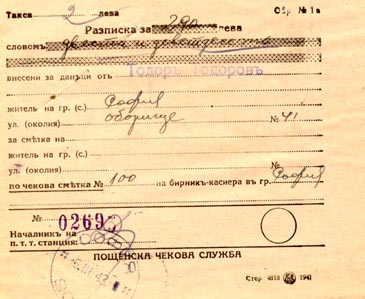 Такса 2 лева Обр. № 1 а
Разписка за 290 лева
словомъ двести и деветдесетъ
внесени за данъци от Тодоръ Тодоровъ
жител на гр. (с.) София
ул. (околия) оборище № 41
за смѣтка на
жител на гр. (с.)
ул. (околия) №
по чекова смѣтка № 100 на бирникъ-касиера въ гр. София
№ 02695
Началникъ на
п. т. т. станция:
ПОЩЕНСКА ЧЕКОВА СЛУЖБА
Стер 4818 1941